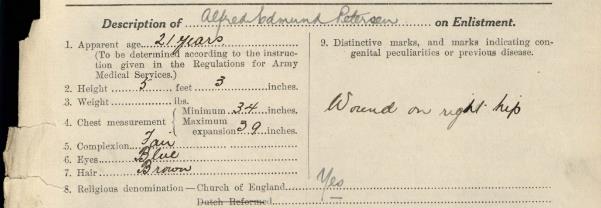 Description of Alfred Edmund Petersen on Enlistment.
1. Apparent age 21 Years
(To be determined according to the instruc-
tion given in the Regulations for Army
Medical Services.)
2. Height 5 feet 3 inches.
3. Weight lbs.
4. Chest measurement { Minimum 34 inches.
Maximum
expansion 39 inches.
5. Complexion Fair
6. Eyes Blue
7. Hair Brown
8. Religious denomination—Church of England Yes
Dutch Reformed
9. Distinctive marks, and marks indicating con-
genital peculiarities or previous disease.
Wound on right hip